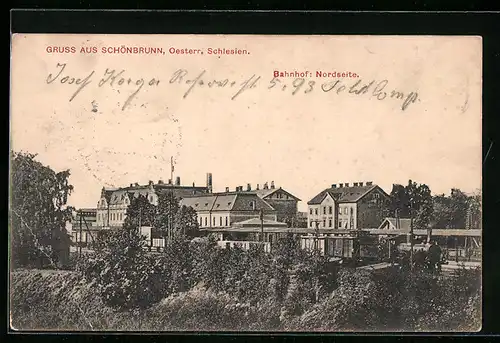 GRUSS AUS SCHÖNBRUNN, Oesterr, Schlesien.
Bahnhof: Nordseite.
Josef 5/93 Feld Comp.